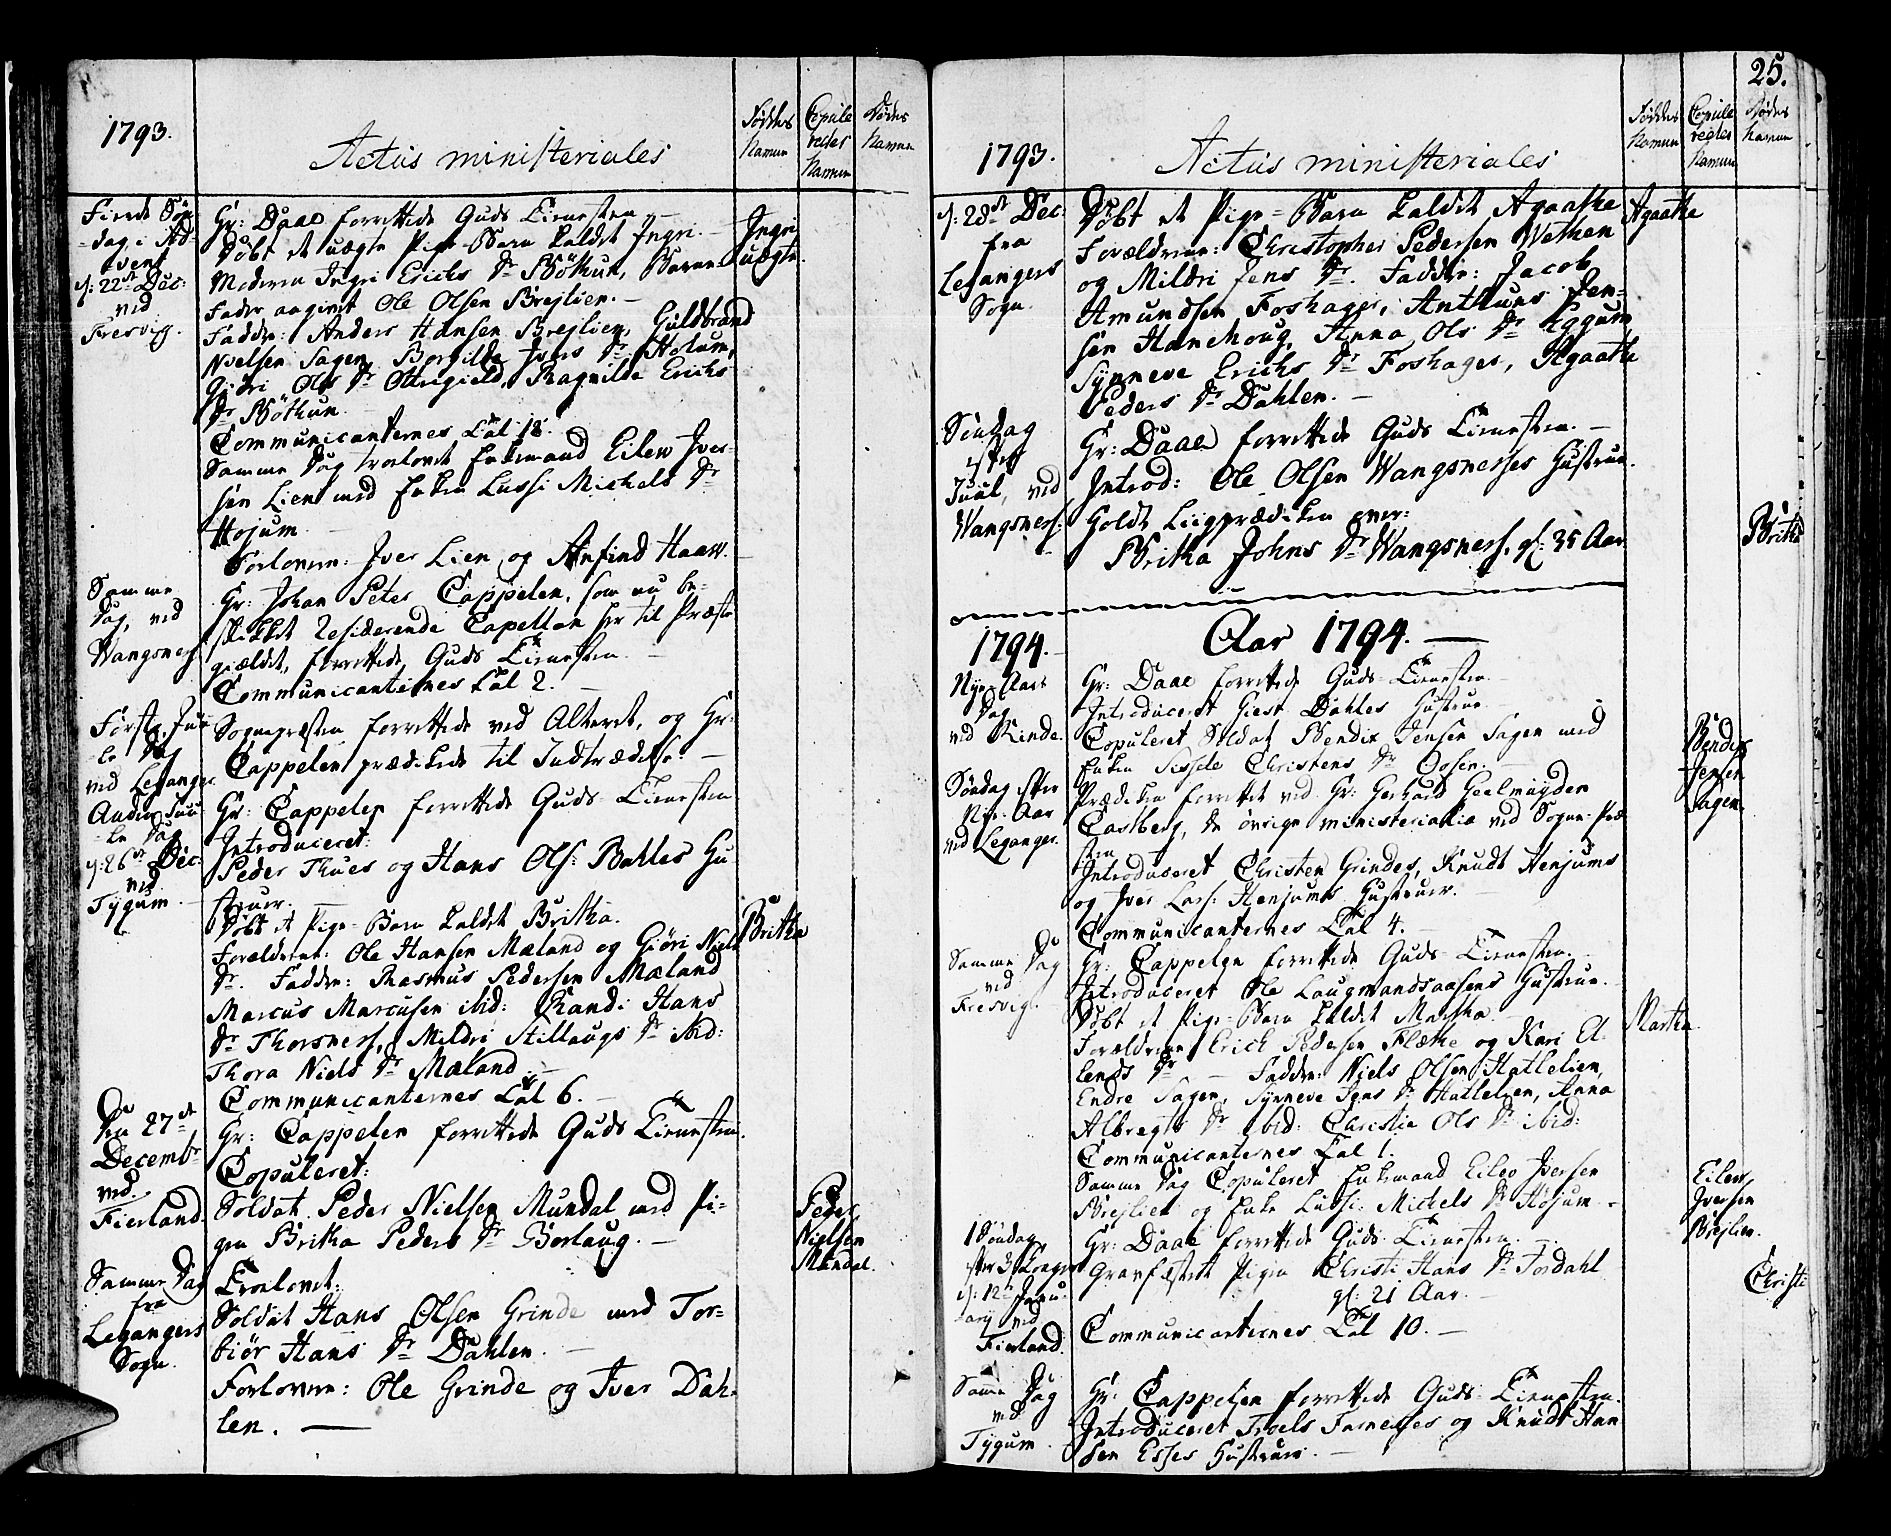 1793.
Actus ministeriales
Fødtes Namn
Copuleredes Namn
Dødes Namn
Fierde Søn-
dag i Ad-
vent
d: 22de Dec:
ved
Fresvig.
Hr: Daae forrettede Guds Tienesten
Døbt et uægte Pige-Barn kaldet Ingri.
Moderen Ingri Erichs Dr Bøthun, Barne-
Fader angivet Ole Olsen Brejlien.
Faddere: Anders Hansen Brejlien, Guldbrand
Nielsen Sagen, Borgilde Ivers Dr Holum,
Gjøri Ols Dr Ottergield, Ragnilde Erichs
Dr Bøthun
Communicanternes Tal 18.
Samme Dag trolovet Enkemand Eilew Iver-
sen Lien med Enken Lussi Michels Dr
Hojum
Forlovere: Iver Lien og Anfind Haaw.
Ingri
uægte
Samme
Dag, ved
Wangsness
Hr: Johan Peter Cappelen, som nu be-
skikket Residerende Capellan her til Præste-
gieldet, forrettede Guds Tienesten
Communicanternes Tal 2.
Første Juu-
le Dag
ved Leganger
Sognepræsten forrettede ved Alteret, og Hr:
Cappelen prædikede til Indtrædelse.
Anden Juu-
le Dag
d: 26de Dec:
ved
Tygum
Hr: Cappelen forrettede Guds Tienesten
Introduceret:
Peder Thues og Hans Ols: Bahles Hu-
struer.
Døbt et Pige-Barn kaldet Britha.
Forældrene: Ole Hansen Mæland og Giøri Niels
Dr. Faddere: Rasmus Pedersen Mæland
Marcus Marcusen ibid: Randi Hans
Dr Thorsness, Mildri Stillaugs Dr ibid:
Thora Niels Dr Mæland
Communicanternes Tal 6.
Britha
Den 27de
Decembr
ved
Fierland.
Hr: Cappelen forrettede Guds Tienesten.
Copuleret:
Soldat Peder Nielsen Mundal med Pi-
gen Britha Peders Dr Børlaug.
Peder
Nielsen
Mundal.
Samme Dag
fra
Legangers
Sogn.
Trolovet:
Soldat Hans Olsen Grinde med Tor-
biør Hans Dr Dahlen.
Forlovere: Ole Grinde og Iver Dah-
len.
25.
1793.
Actus ministeriales
Fødtes Namn
Copuleredes Namn
Dødes Namn
d: 28de Dec:
fra
Legangers
Sogn.
Døbt et Pige-Barn kaldet Agaathe
Forældrene: Christopher Pedersen Wethen
og Mildri Jens Dr. Faddere: Jacob
Amundsen Foshager, Anthuns Jen-
sen Hanehoug, Anna Ols Dr Eggum,
Synneve Erichs Dr Foshager, Agaathe
Peders Dr Dahlen.
Agaathe
Søndag
efter
Juul, ved
Wangsness:
Hr: Daae forrettede Guds Tienesten.
Introd: Ole Olsen Wangsnesses Hustrue.
Holdt Liigprædiken over:
Britha Johns Dr Wangsness, gl: 35 Aar
Britha
Aar 1794.
1794.
Nye-Aars
Dag
ved Rinde.
Hr: Daae forrettede Guds Tienesten.
Introduceret Giest Dahles Hustrue
Copuleret Soldat Bendix Jensen Sagen med
Enken Sissele Christens Dr
Bendix
Jensen
Sagen
Søndag efter
Nye-Aar
ved Leganger.
Prædiken forrettet ved Hr: Gerhard Geelmuyden
Castberg, de øvrige ministerialia ved Sogne-Præ-
sten
Introduceret Christen Grindes, Knudt Henjums
og Iver Lars: Henjums Hustruer.
Communicanternes Tal 4.
Samme Dag
ved
Fresvig.
Hr: Cappelen forrettede Guds Tienesten.
Introduceret Ole Laugmandsaasens Hustrue.
Døbt et Pige-Barn kaldet Martha
Forældrene Erich Pedersen Flæthe og Kari El-
lends Dr Faddere: Niels Olsen Hattelien,
Endre Sagen, Synneve Jens Dr Hattelien, Anna
Albregts Dr ibid: Christie Ols Dr ibid:
Communicanternes Tal 1.
Samme Dag Copuleret Enkemand Eilev Iversen
Brejlien og Enke Lussi Michels Dr Hojum
Martha
Eilew
Iversen
Brejlien.
1 Søndag
efter 3 Konger
d: 12te Janu-
arij ved
Fierland.
Hr: Daae forrettede Guds Tienesten.
Gravfæstet Pigen Christi Hans Dr Jordahl
gl: 21 Aar.
Communicanternes Tal 10.
Christi
Samme Dag
ved
Tygum
Hr: Cappelen forrettede Guds Tienesten.
Introduceret Troels Farneses og Knudt Han-
sen Esses Hustruer.